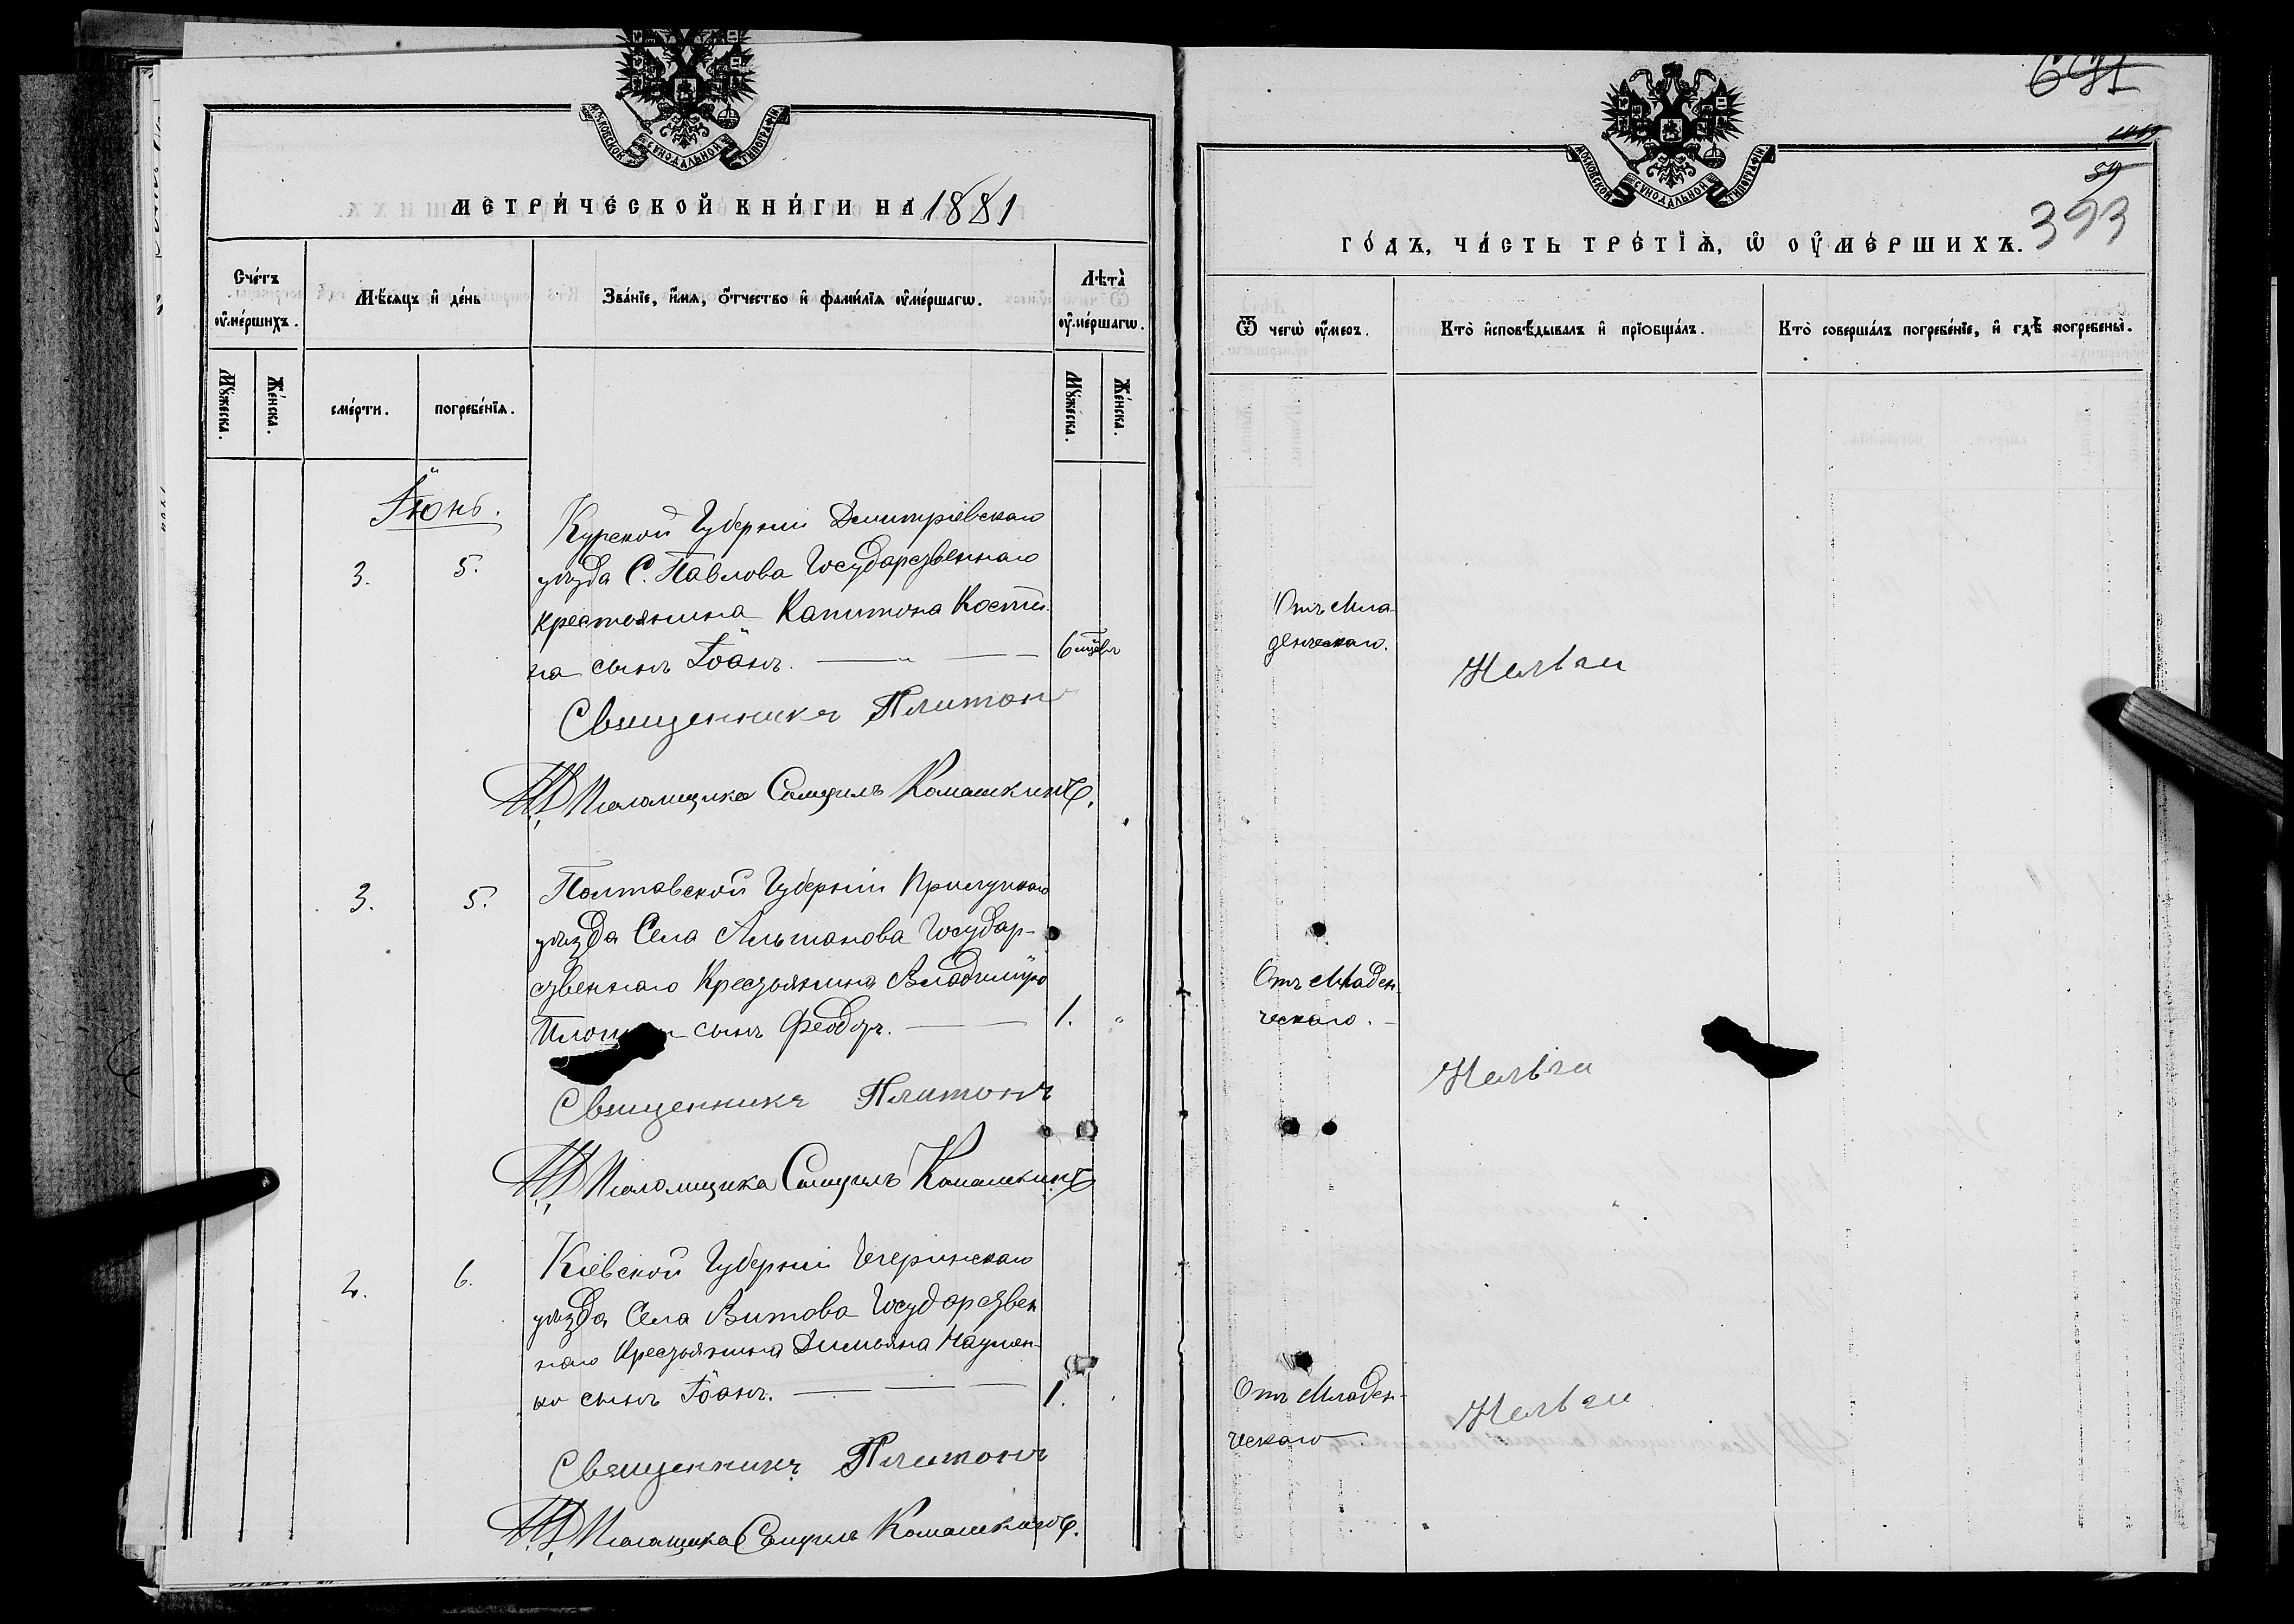 МОСКОВСКОЙ СѴНОДАЛЬНОЙ ТИПОГРАФІИ
МЕТРИ́ЧЕСКОЙ КНИ́ГИ НА 1881
Сче́тъ ᲂу҆ме́ршихъ.
Мѣ́сяцъ и҆ де́нь
Зва́нїе, и҆́мѧ, ѻ҆́тчество и҆ фами́лїѧ ᲂу҆ме́ршагѡ.
Лѣта̀ ᲂу҆ме́ршагѡ.
Мꙋ́жеска.
Же́нска.
сме́рти.
погребе́нїѧ.
Мꙋ́жеска.
Же́нска.
Іюнь.
3.
5.
Курской Губерніи Дмитріевскаго
уѣзда С. Павлова Государственнаго
крестьянина Капитона Кости
на сынъ Іоанъ.
6 мцевъ
Священникъ Платонъ
Псаломщика Самуилъ Комашкинъ.
3.
5.
Полтавской Губерніи Прилуцкаго
уѣзда Села Альшанова Государ-
ственнаго Крестьянина Владиміра
сынъ Феодоръ.
1.
Священникъ Платонъ
Псаломщика Самуилъ Комашкинъ
2.
6.
Кіевской Губерніи Чегринскаго
уѣзда Села Витова Государствен
наго Крестьянина Димьяна Наумен-
ко сынъ Іоанъ.
1.
Священникъ Платонъ
Псаломщика Самуилъ Комашкинъ.
МОСКОВСКОЙ СѴНОДАЛЬНОЙ ТИПОГРАФІИ
393
ГО́ДЪ, ЧА́СТЬ ТРЕ́ТЇѦ, Ѡ҆ ОУ҆МЕ́РШИХЪ.
Ѿ чегѡ̀ ᲂу҆́меръ.
Кто̀ и҆сповѣ́дывалъ и҆ прїѡбща́лъ.
Кто̀ соверша́лъ погребе́нїе, и҆ гдѣ̀ погребены̀.
Отъ Мла-
денческаго.
Отъ Младен-
ческаго.
Отъ Младен-
ческаго